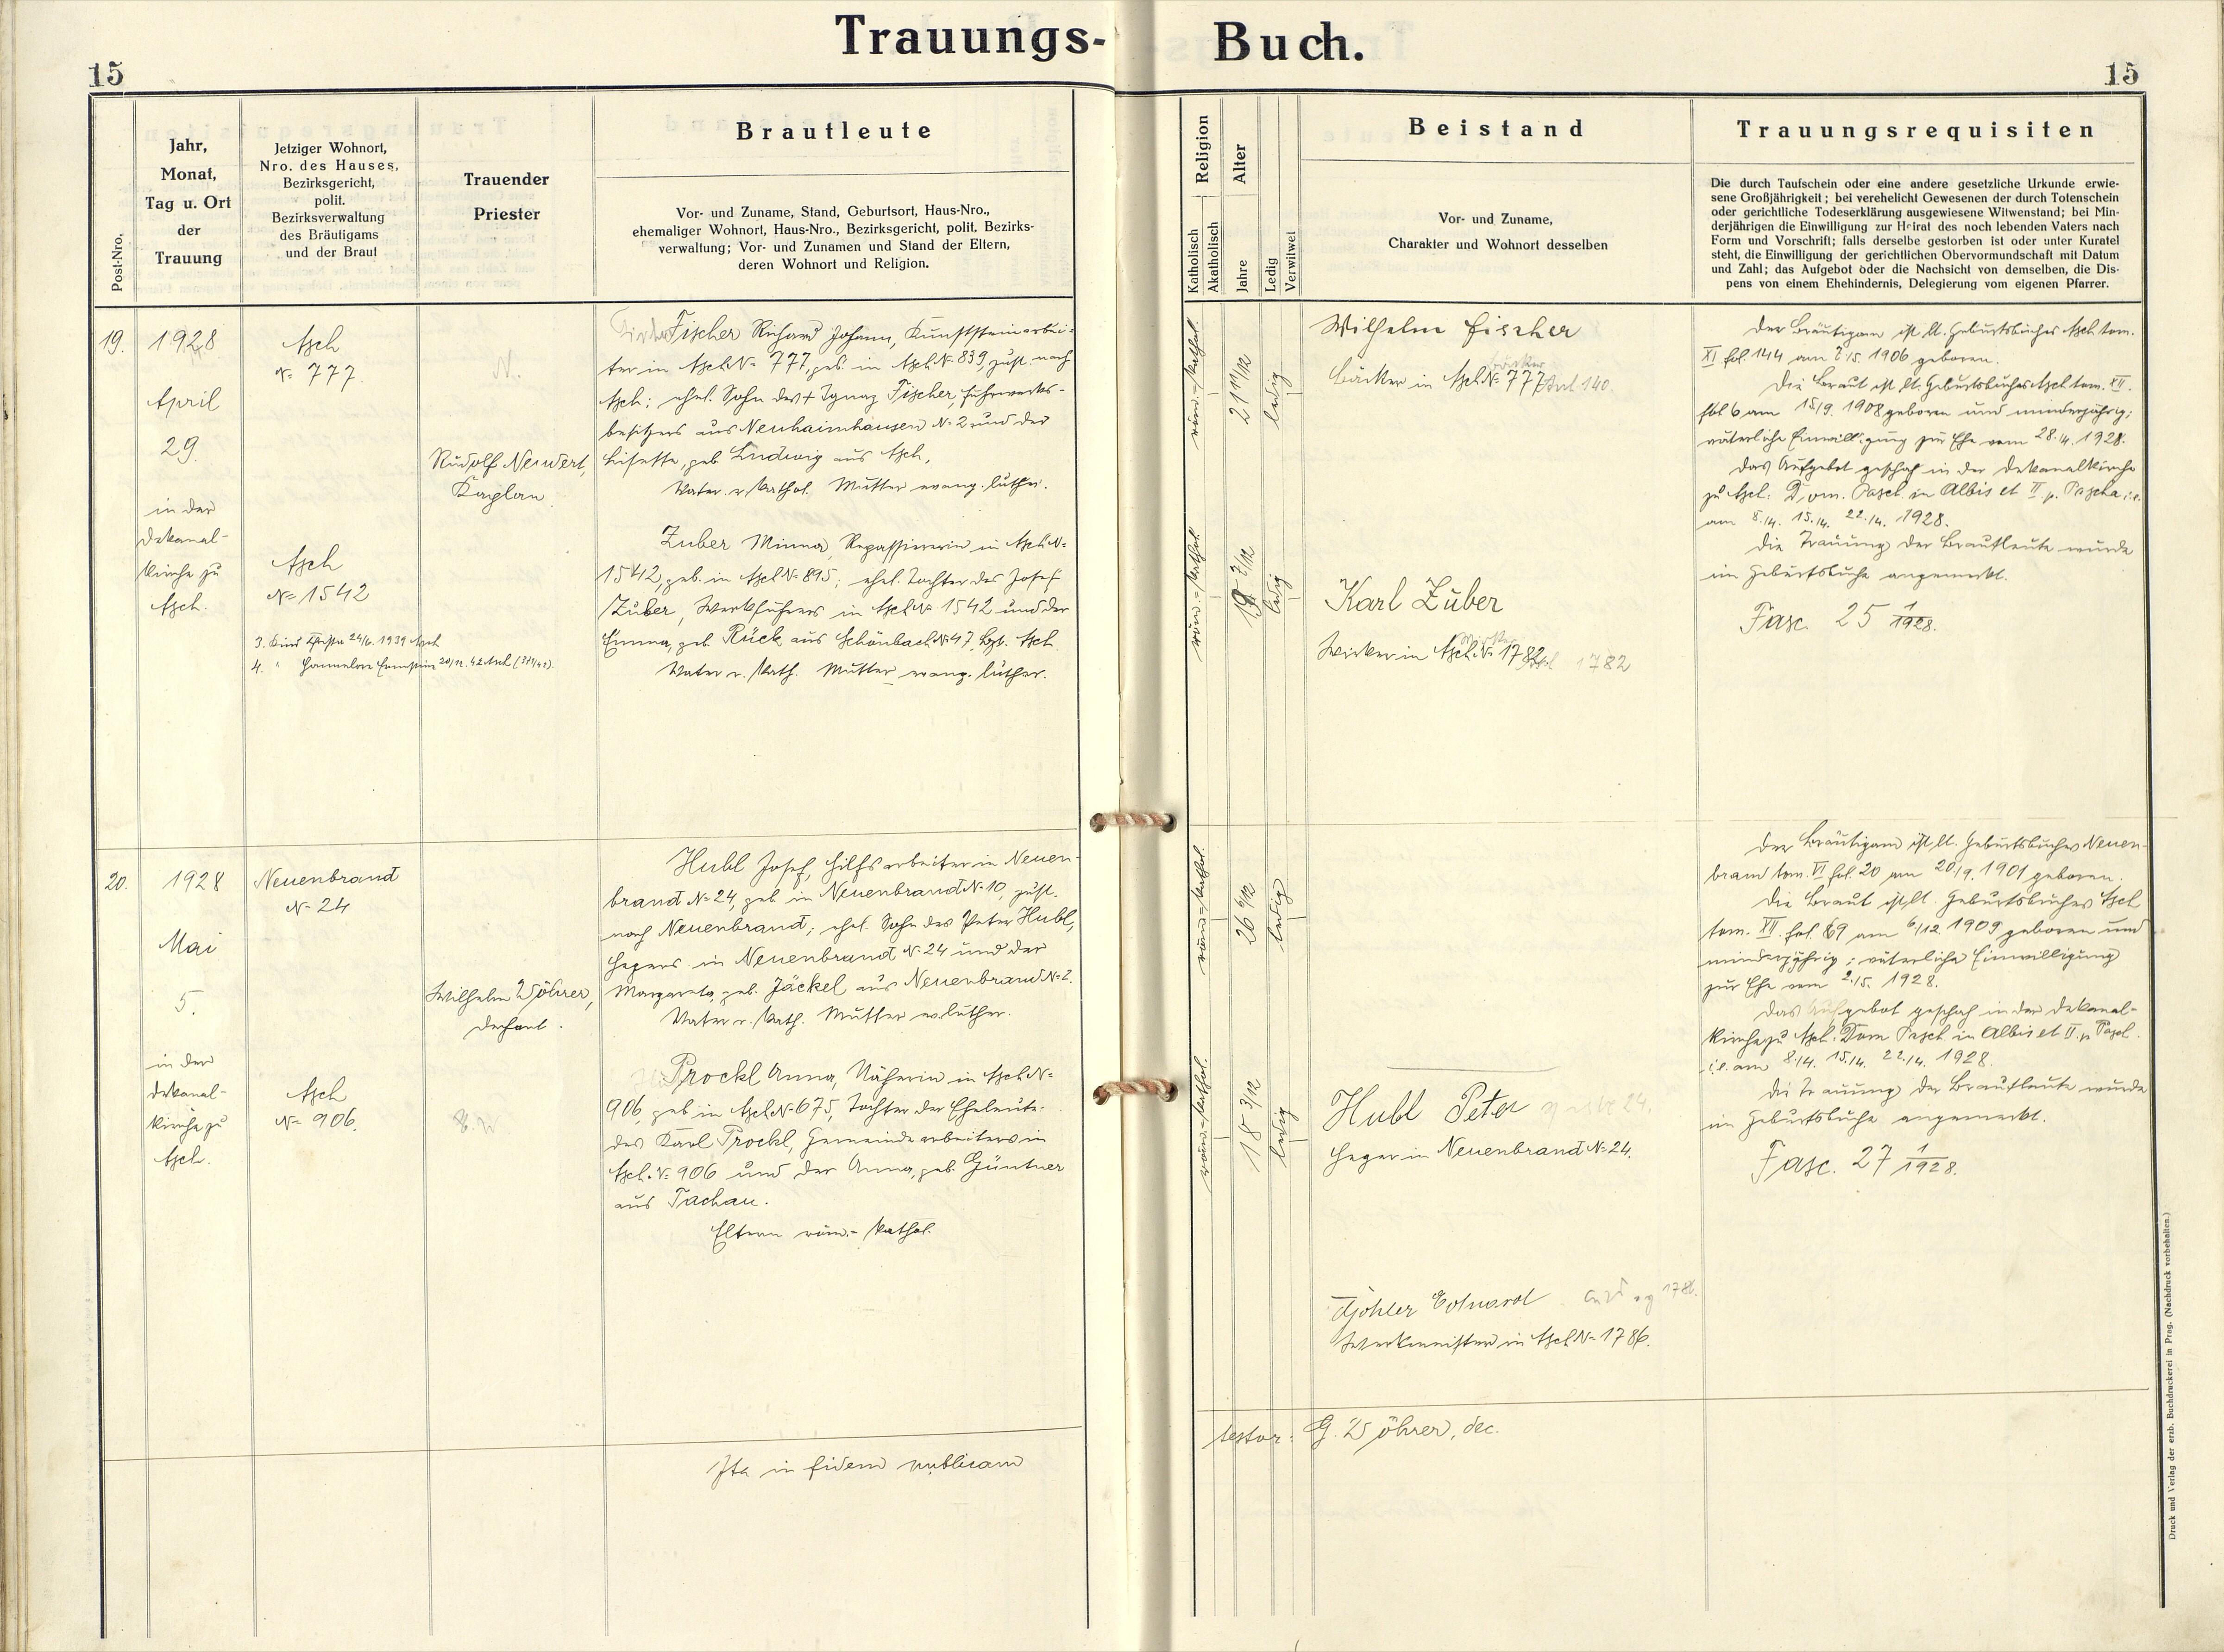 Trauungs-Buch.
15
15
Post-Nro.
Jahr,
Monat,
Tag u. Ort
der
Trauung
Jetziger Wohnort,
Nro. des Hauses,
Bezirksgericht,
polit.
Bezirksverwaltung
des Bräutigams
und der Braut
Trauender
Priester
Brautleute
Vor- und Zuname, Stand, Geburtsort, Haus-Nro.,
ehemaliger Wohnort, Haus-Nro., Bezirksgericht, polit. Bezirks-
verwaltung; Vor- und Zunamen und Stand der Eltern,
deren Wohnort und Religion.
Religion
Katholisch
Akatholisch
Alter
Jahre
Ledig
Verwitwet
Beistand
Vor- und Zuname,
Charakter und Wohnort desselben
Trauungsrequisiten
Die durch Taufschein oder eine andere gesetzliche Urkunde erwie-
sene Großjährigkeit; bei verehelicht Gewesenen der durch Totenschein
oder gerichtliche Todeserklärung ausgewiesene Witwenstand; bei Min-
derjährigen die Einwilligung zur Heirat des noch lebenden Vaters nach
Form und Vorschrift; falls derselbe gestorben ist oder unter Kuratel
steht, die Einwilligung der gerichtlichen Obervormundschaft mit Datum
und Zahl; das Aufgebot oder die Nachsicht von demselben, die Dis-
pens von einem Ehehindernis, Delegierung vom eigenen Pfarrer.
19.
1928
April
29.
in der
Dekanal-
kirche zu
Asch.
Asch
N= 777.
Asch
N= 1542
3. Kind 24/6. 1939 Asch
4. " Hannelore 20/12. 42 Asch
N.
Rudolf Neuwert,
Kaplan
Fischer Richard Johann, Kunststeinarbei-
ter in Asch N= 777, geb. in Asch N= 839, zust. nach
Asch; ehel. Sohn des + Ignaz Fischer, Fuhrwerks-
besitzers aus Neuhaimhausen N= 2 und der
Lisette, geb. Ludwig aus Asch,
Vater r. kathol. Mutter evang. luther.
Zuber Minna, Repassiererin in Asch N=
1542, geb. in Asch N= 895; ehel. Tochter des Josef
Zuber, Werkführers in Asch N= 1542 und der
Emma, geb. Rück aus Schönbach N= 47, Bzk. Asch.
Vater r. kath. Mutter evang. luther.
röm.-kathol.
21 11/12
ledig
röm.-kathol.
19 7/12
ledig
Wilhelm Fischer
Bäcker in Asch N= 777
Karl Zuber
Wirker in Asch N= 1782
Asch 1782
Der Bräutigam ist lt. Geburtsbuches Asch tom.
XI fol. 144 am 7./5. 1906 geboren.
Die Braut ist lt. Geburtsbuches Asch tom. XII.
fol 6 am 15/9. 1908 geboren und minderjährig;
väterliche Einwilligung zur Ehe vom 28./4. 1928.
Das Aufgebot geschah in der Dekanalkirche
zu Asch: Dom. Pasch. in Albis et II p. Pascha i.e.
am 8./4. 15./4. 22./4. 1928.
Die Trauung der Brautleute wurde
im Geburtsbuche angemerkt.
Fasc. 25 1/1928.
20.
1928
Mai
5.
in der
Dekanal-
kirche zu
Asch.
Neuenbrand
N= 24
Asch
N= 906.
Wilhelm Wöhrer,
Dechant.
Hubl Josef, Hilfsarbeiter in Neuen-
brand N= 24, geb. in Neuenbrand N= 10, zust.
nach Neuenbrand; ehel. Sohn des Peter Hubl,
Hegers in Neuenbrand N= 24 und der
Margareta, geb. Jäckel aus Neuenbrand N= 2.
Vater r. kath. Mutter ev. luther.
Prockl Anna, Näherin in Asch N=
906, geb. in Asch N= 675, Tochter der Eheleute:
des Karl Prockl, Gemeindearbeiters in
Asch N= 906 und der Anna, geb. Güntner
aus Tachau.
Eltern röm.-kathol.
röm.-kathol.
26 6/12
ledig
röm.-kathol.
18 3/12
ledig
Hubl Peter
Heger in Neuenbrand N= 24.
Eduard
Werkmeister in Asch N= 1786.
Der Bräutigam ist lt. Geburtsbuches Neuen-
brand tom. VI fol. 20 am 20./9. 1901 geboren.
Die Braut ist lt. Geburtsbuches Asch
tom. XII. fol. 89 am 6/12 1909 geboren und
minderjährig; väterliche Einwilligung
zur Ehe vom 2./5. 1928.
Das Aufgebot geschah in der Dekanal-
kirche zu Asch: Dom Pasch. in Albis et II. p. Pasch.
i.e. am 8./4. 15./4. 22./4. 1928.
Die Trauung der Brautleute wurde
im Geburtsbuche angemerkt.
Fasc. 27 1/1928.
Ita in fidem publicam
testor: G. Wöhrer, dec.
Druck und Verlag der erzb. Buchdruckerei in Prag. (Nachdruck vorbehalten.)